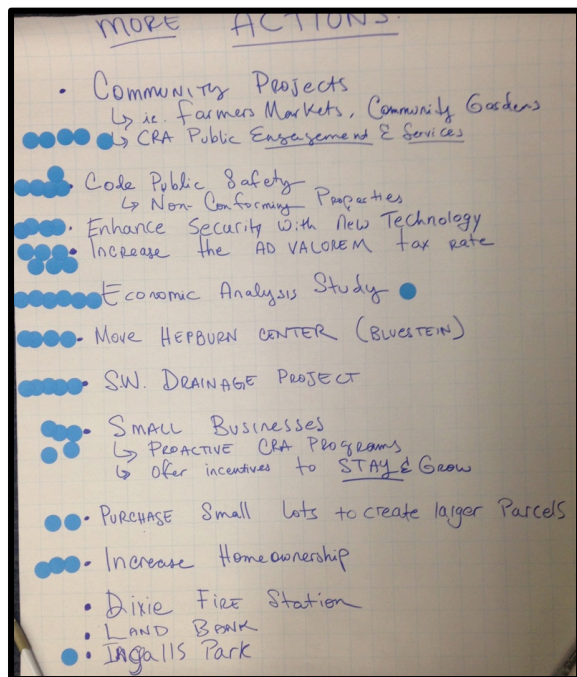 MORE ACTIONS.
• Community Projects
↳ ie. Farmers Markets, Community Gardens
↳ CRA Public Engagement & Services
• Code Public Safety
↳ Non-Conforming Properties
• Enhance Security with New Technology
• Increase the AD VALOREM tax rate
Economic Analysis Study
• Move HEPBURN CENTER (BLUESTEIN)
• S.W. DRAINAGE PROJECT
• Small Businesses
↳ PROACTIVE CRA Programs
↳ Offer incentives to STAY & Grow
• PURCHASE Small Lots to create larger Parcels
• Increase Homeownership
• Dixie Fire Station
• LAND BANK
• Ingalls Park